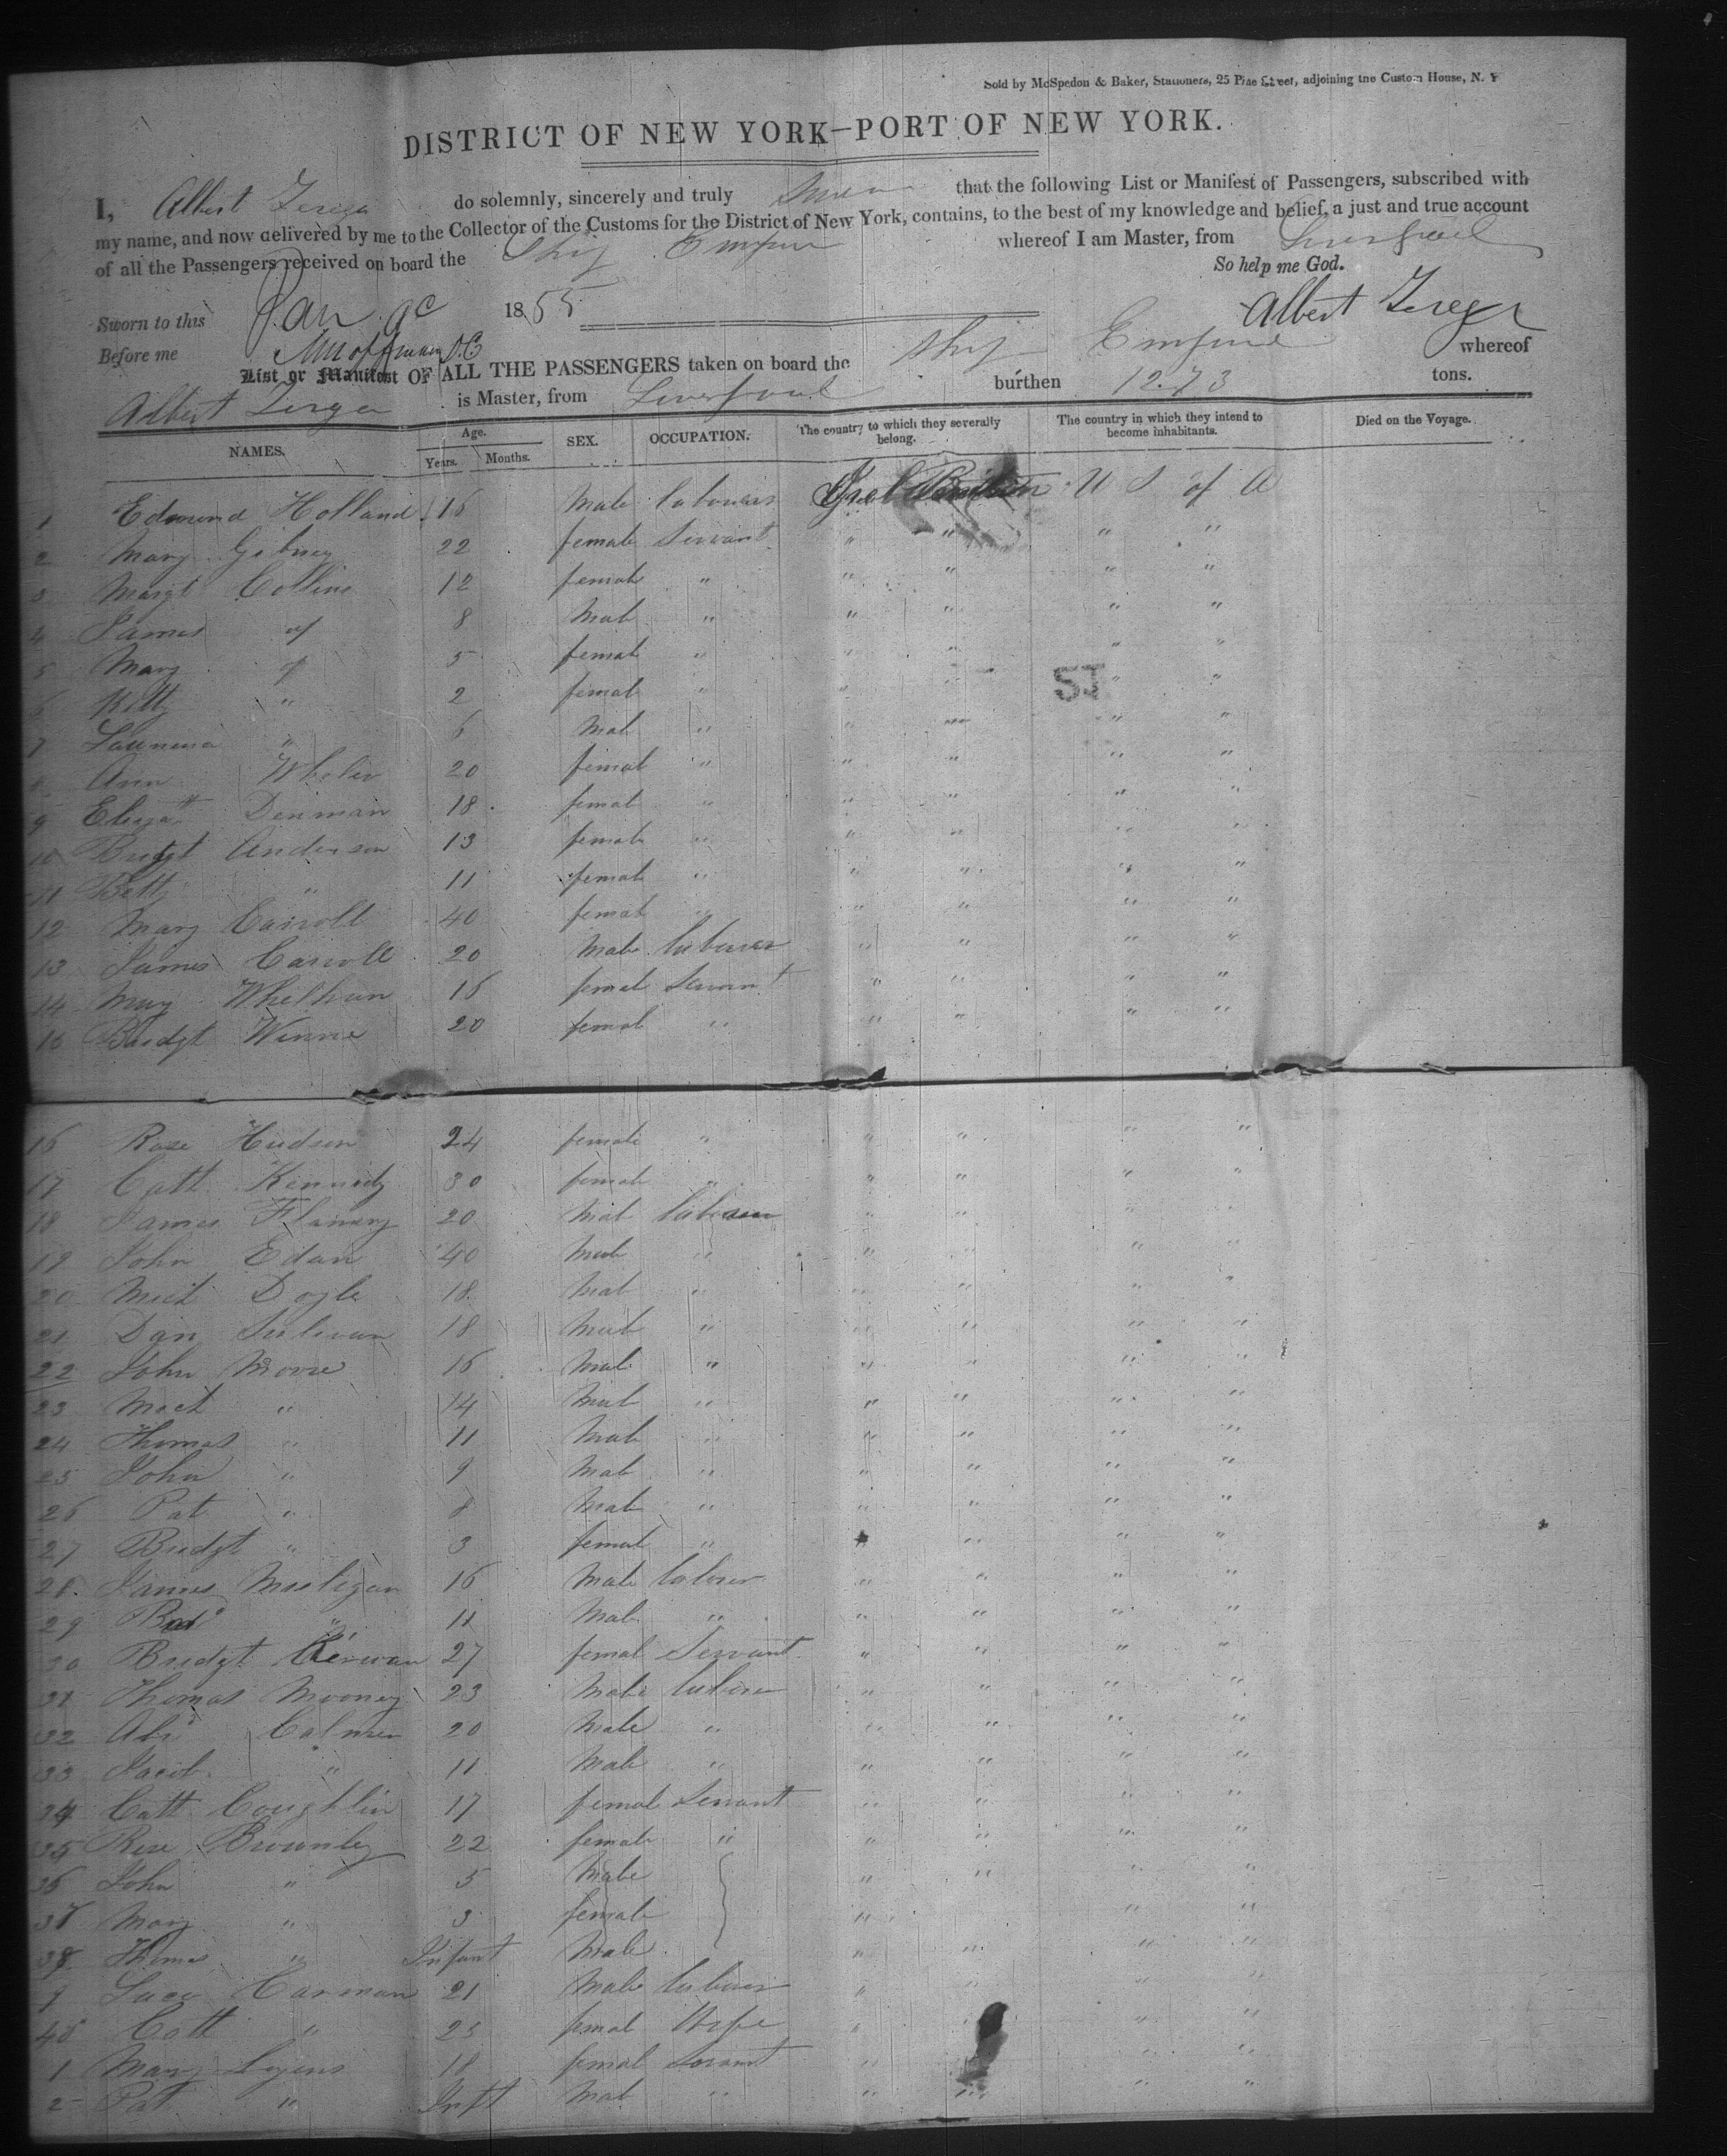 Sold by McSpedon & Baker, Stationers, 25 Pine Street, adjoining the Custom House, N. Y
DISTRICT OF NEW YORK—PORT OF NEW YORK.
I, Albert Zerega do solemnly, sincerely and truly swear that the following List or Manifest of Passengers, subscribed with
my name, and now delivered by me to the Collector of the Customs for the District of New York, contains, to the best of my knowledge and belief, a just and true account
of all the Passengers received on board the Ship Empire whereof I am Master, from Liverpool
So help me God.
Sworn to this Jan 1855 Albert Zerega
Before me
List or Manifest OF ALL THE PASSENGERS taken on board the Ship Empire whereof
Albert Zerega is Master, from Liverpool burthen 1273 tons.
NAMES. Age. Years. Months. SEX. OCCUPATION. The country to which they severally belong. The country in which they intend to become inhabitants. Died on the Voyage.
1 Edmund Holland 16 Male labourers U S of A
2 Mary Gibney 22 female Servant " " " "
3 Margt Collins 12 female " " " " "
4 James 8 Male " " " " "
5 Mary 5 female " " " " "
6 Kitty " 2 female " " " " "
51
7 " 6 Male " " " " "
8 Ann Whelen 20 female " " " " "
9 Elizath Denman 18 female " " " " "
10 Bridgt Anderson 13 female " " " " "
11 Betty " 11 female " " " " "
12 Mary Carroll 40 female " " " " "
13 James Carroll 20 Male labourer " " " "
14 Mary Whelhan 16 female Servant " " " "
15 Bridgt Winne 20 female " " " " "
16 Rose Hudson 24 female " " " " "
17 Cath Kennedy 30 female " " " " "
18 James Flanary 20 Male labourer " " " "
19 John Edan 40 Male " " " " "
20 Mich Doyle 18 Male " " " " "
21 Dan Sulivan 18 Male " " " " "
22 John Moore 16 Male " " " " "
23 Mich " 14 Male " " " " "
24 Thomas " 11 Male " " " " "
25 John " 9 Male " " " " "
26 Pat " 8 Male " " " " "
27 Bridgt " 3 female " " " " "
28 James Muligan 16 Male laborer " " " "
29 " 11 Male " " " " "
30 Bridgt Kerwan 27 female Servant " " " "
31 Thomas Mooney 23 Male laborer " " " "
32 20 Male " " " " "
33 Jacob " 11 Male " " " " "
34 Cath Coughlin 17 female Servant " " " "
35 Rose Brownley 22 female " " " " "
36 John " 5 Male " " " "
37 Mary " 3 female " " " "
38 Thomas " Infant Male " " " "
9 Carman 21 Male labourer " " " "
40 Cath " 23 female Wife " " " "
1 Mary Lyons 18 female Servant " " " "
2 Pat " Inft Male " " " " "